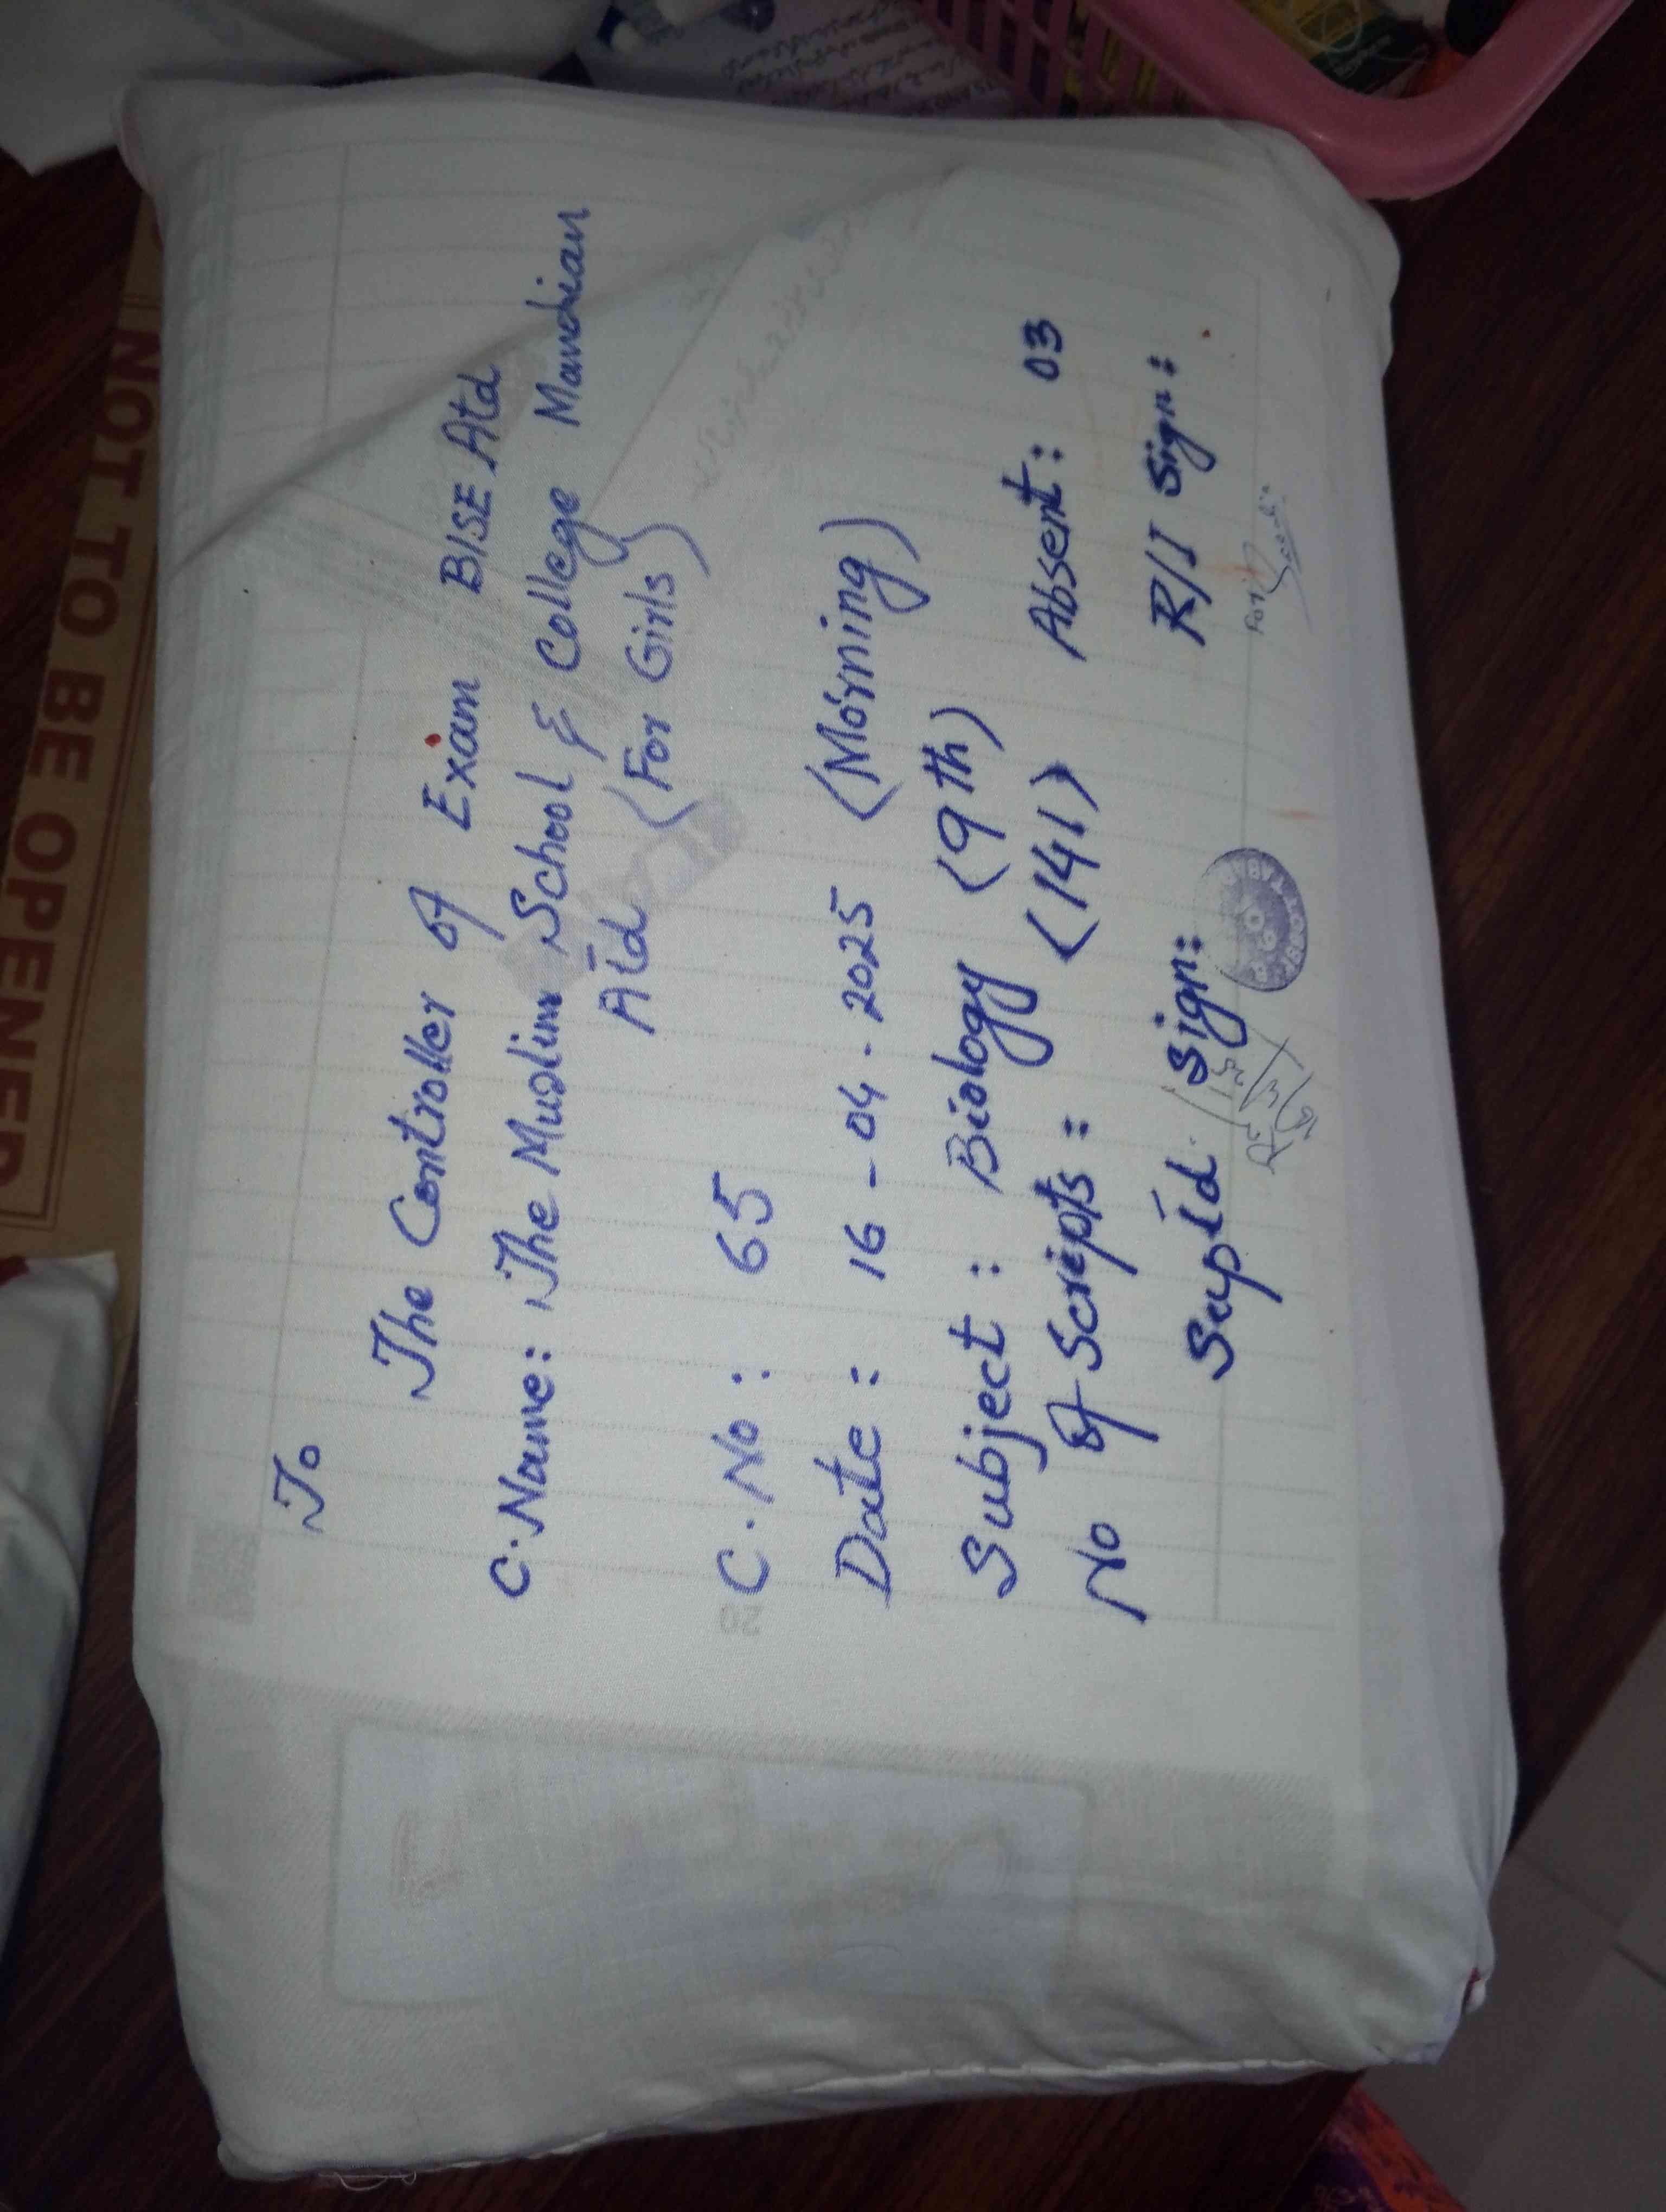 To
The Controller of Exam BISE Atd
C.Name: The Muslim School & College Mandian
Atd (For Girls)
C.No: 65
Date: 16-04-2025 (Morning)
Subject: Biology (9th)
No of Scripts: (141) Absent: 03
Supid. Sign: R/I Sign:
For
28
NOT TO BE OPENED